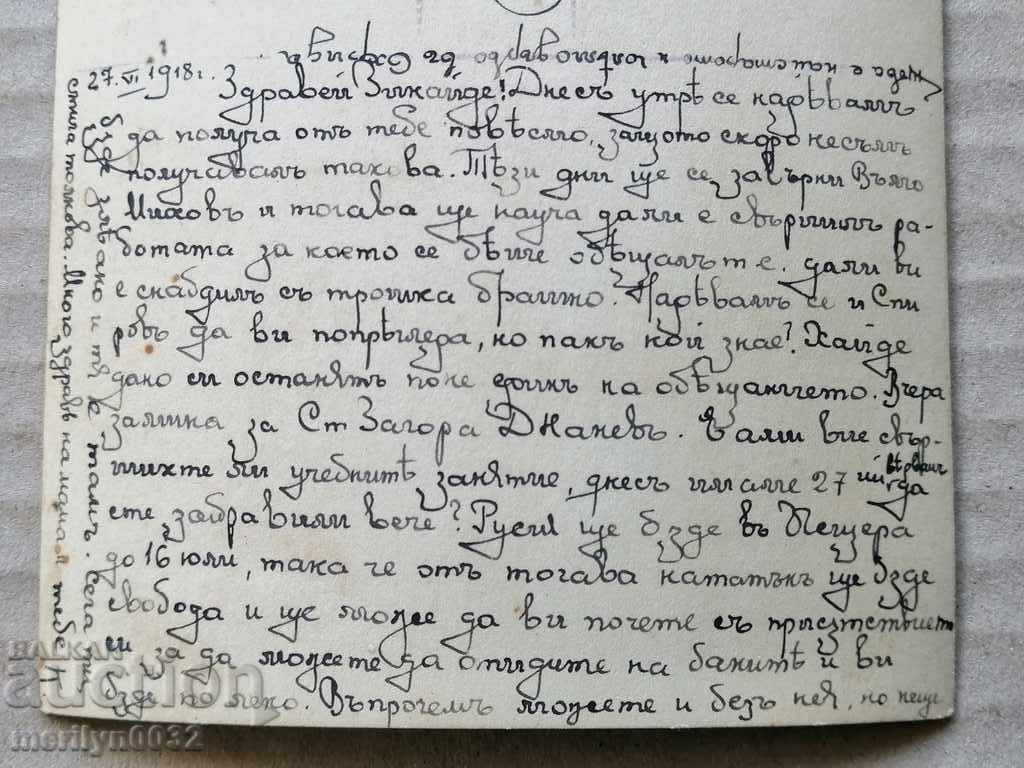 27. VI 1918 г. Здравей Зинаиде! Днесъ утрѣ се надѣвамъ
да получа отъ тебе повѣстяго, защото скоро несъмъ
получавалъ такова. Тѣзи дни ще се завърни Вълчо
Миховъ и тогава ще науча дали е свършилъ ра-
ботата за което се бѣше обѣщалъ т.е. дали ви
е снабдилъ съ трошка брашно? Надѣвамъ се и Спи
ровъ да ви попрѣгледа, но пакъ кой знае? Хайде
дано си останятъ поне единъ на обѣщанието. Вчера
замина за Ст Загора Д Наневъ. Е али вие свър-
шихте ли учебнитѣ занятие, днесъ имаме 27 ий вѣрвамъ да
сте забравили вече? Русия ще бѫде въ Пещера
до 16 юли, така че отъ тогава нататъкъ ще бѫде
свобода и ще може да ви почете съ присѫтствието
си за да можете да отидите на банитѣ и ви
бѫде по леко. Въпрочемъ можете и безъ нея, но неще
бѫде злѣ ако и тя е тамъ. Сега ми
стига толкова. Много здраве на мама и тебе